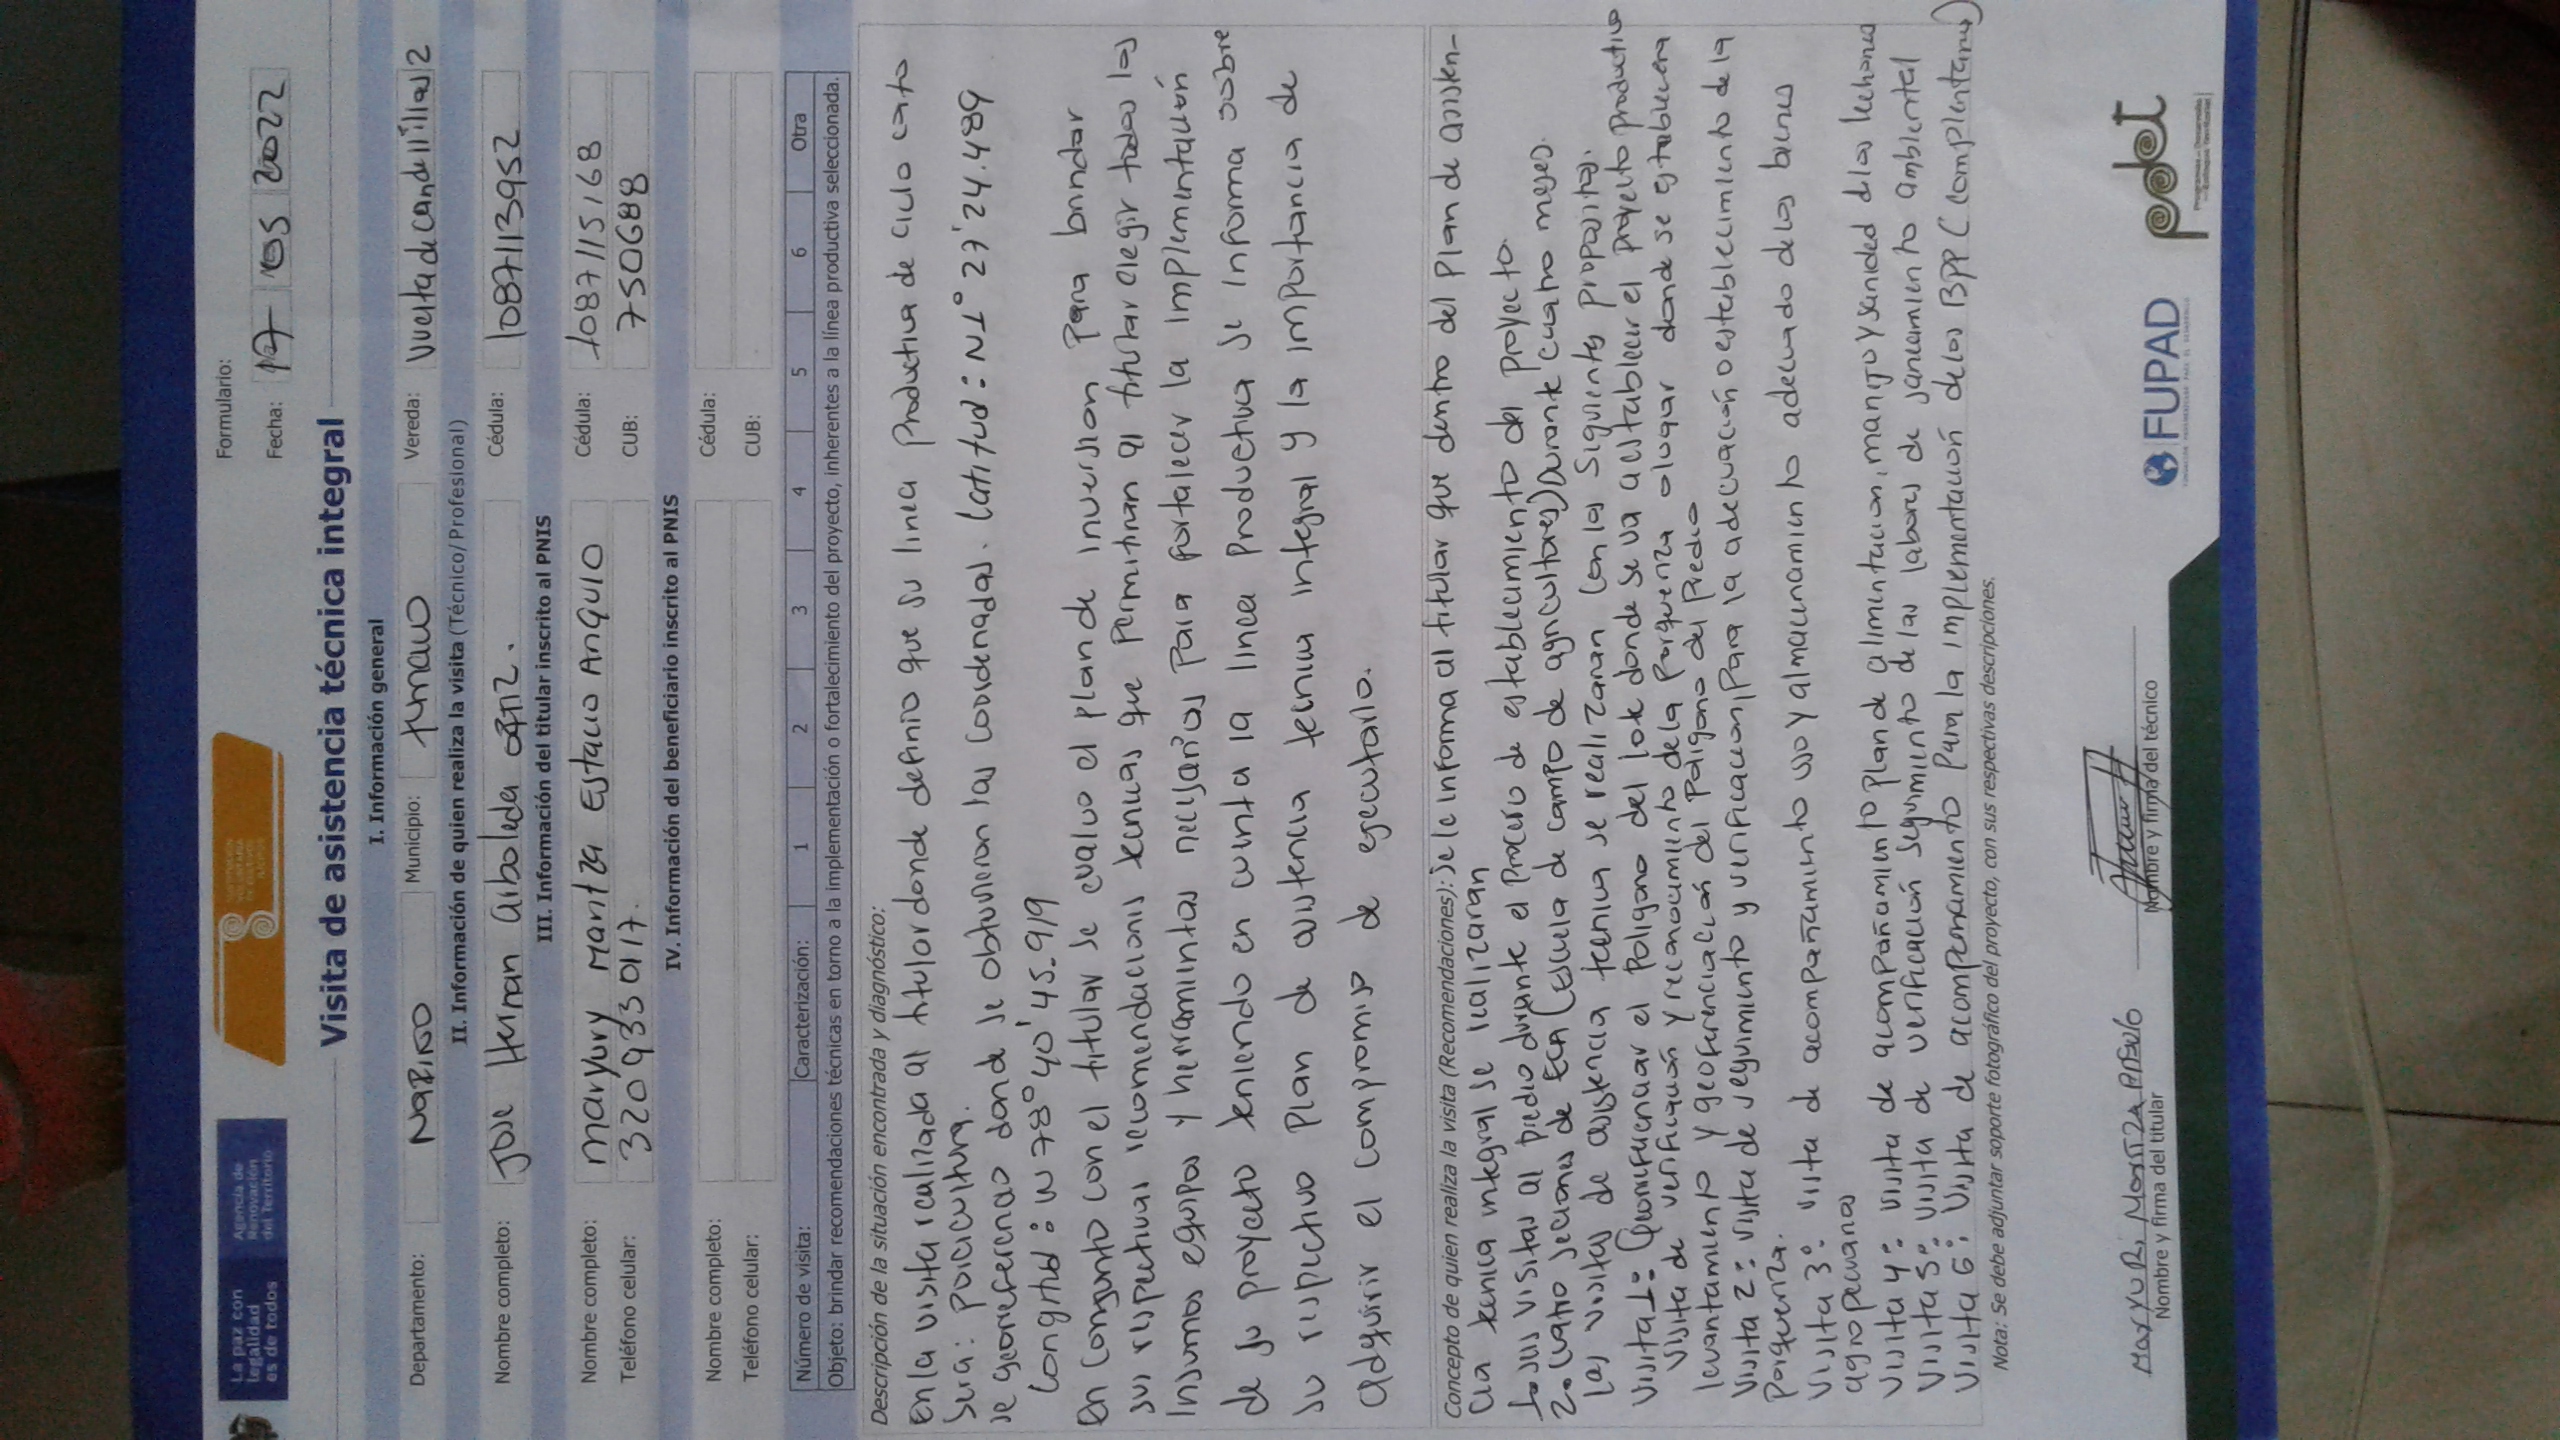 La paz con
legalidad
es de todos
Agencia de
Renovación
del Territorio
Formulario:
Fecha: 17 05 2022
Visita de asistencia técnica integral
I. Información general
Departamento: Nariño Municipio: tumaco Vereda: Vuelta de candelillas 2
II. Información de quien realiza la visita (Técnico/Profesional)
Nombre completo: Jose Hernan arboleda ortiz. Cédula: 1087113952
III. Información del titular inscrito al PNIS
Nombre completo: maryury Maritza Estacio Angulo Cédula: 1087115168
Teléfono celular: 3209330117. CUB: 750688
IV. Información del beneficiario inscrito al PNIS
Nombre completo: Cédula:
Teléfono celular: CUB:
Número de visita: Caracterización: 1 2 3 4 5 6 Otra
Objeto: brindar recomendaciones técnicas en torno a la implementación o fortalecimiento del proyecto, inherentes a la línea productiva seleccionada.
Descripción de la situación encontrada y diagnóstico:
En la visita realizada al titular donde definio que su linea Productiva de ciclo corto
Sera: Porcicultura.
se georeferencio donde se obtuvieron las coordenadas. latitud: N1° 27' 24.489
Longitud: W 78° 40' 45.919
En conjunto con el titular se evaluo el plan de inversion Para brindar
sus respectivas recomendaciones tecnicas que Permitiran al titular elegir todos los
Insumos equipos y herramientas necesarios Para fortalecer la implementación
de su proyecto teniendo en cuenta la linea Productiva se informa sobre
su respectivo Plan de asistencia tecnica integral y la importancia de
adquirir el compromiso de ejecutarlo.
Concepto de quien realiza la visita (Recomendaciones): se le informa al titular que dentro del Plan de asisten-
cia tecnica integral se realizaran
1. seis visitas al predio durante el Proceso de establecimiento del proyecto.
2. cuatro seciones de ECA (Escuela de campo de agricultores) Durante cuatro meses.
Las visitas de asistencia tecnica se realizaran con los siguientes propositos.
Visita 1: Georeferenciar el Poligono del lote donde se va a establecer el proyecto productivo
Visita de verificación y reconocimiento de la Porqueriza o lugar donde se establecera
levantamiento y georeferenciación del Poligono del Predio
Visita 2: visita de seguimiento y verificacion Para la adecuación o establecimiento de la
Porqueriza.
Visita 3: visita de acompañamiento uso y almacenamiento adecuado de los bienes
agropecuarios
Visita 4: visita de acompañamiento Plan de alimentacion, manejo y sanidad de los lechones
Visita 5: visita de verificación seguimiento de las labores de saneamiento ambiental
Visita 6: Visita de acompañamiento Para la implementación de las BPP (complentarias)
Nota: Se debe adjuntar soporte fotográfico del proyecto, con sus respectivas descripciones.
Nombre y firma del titular
Nombre y firma del técnico
FUPAD
pdet